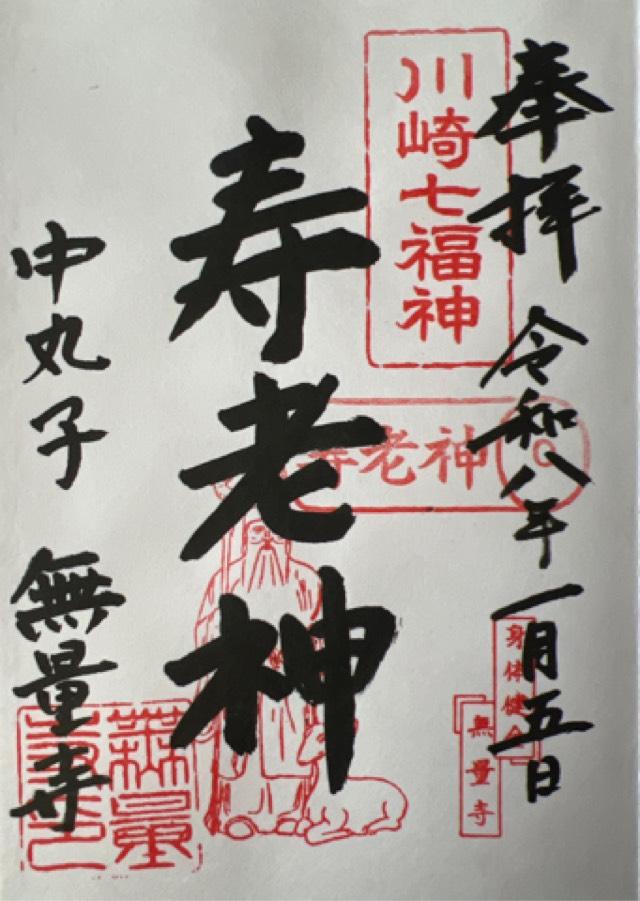 奉拝
令和八年一月五日
川崎七福神
寿老神
寿老神
身体健全
無量寺
中丸子
無量寺
無量
寺印